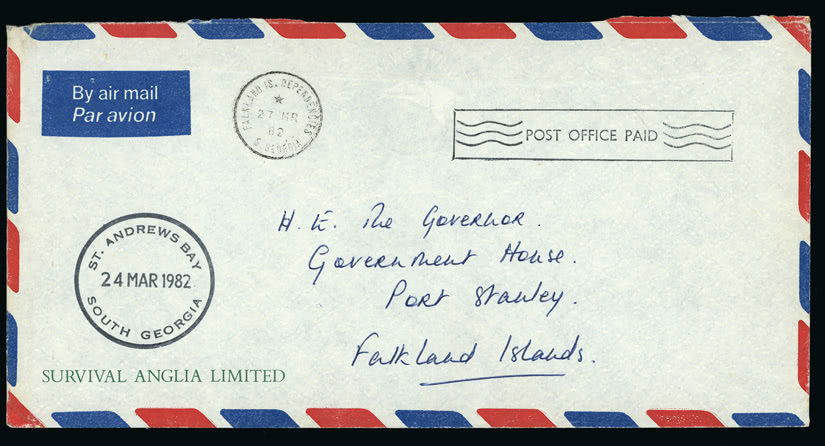 By air mail
Par avion
FALKLAND IS. DEPENDENCIES
★
27 MR
82
S. GEORGIA
POST OFFICE PAID
H. E. The Governor.
Government House.
Port Stanley.
Falkland Islands.
ST. ANDREWS BAY
24 MAR 1982
SOUTH GEORGIA
SURVIVAL ANGLIA LIMITED